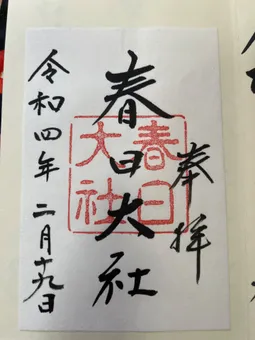 奉拝
春日大社
春日大社
令和四年 二月十九日